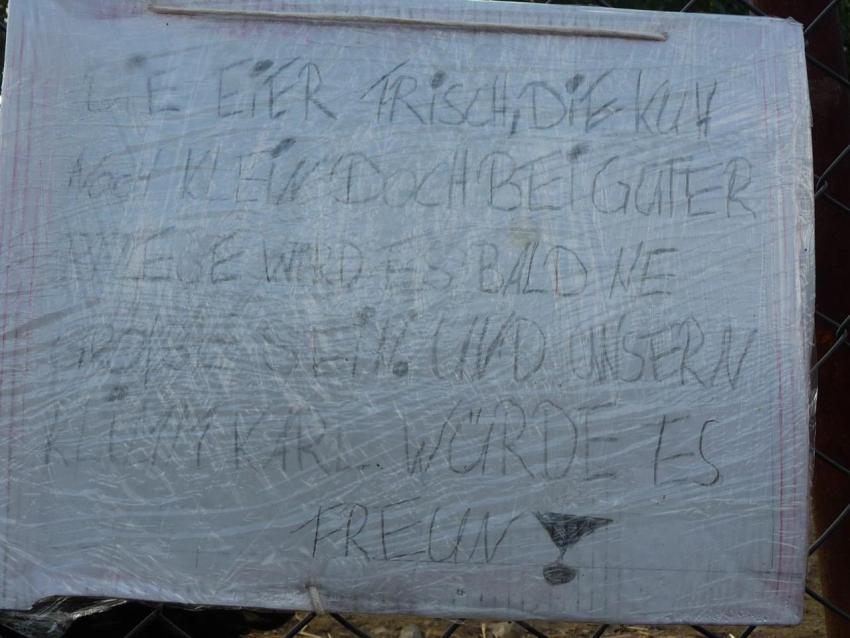 DIE EIER FRISCH, DIE KUH
NOCH KLEIN DOCH BEI GUTER
PFLEGE WIRD ES BALD NE
GROßE SEIN. UND UNSERN
KARL WÜRDE ES
FREUN